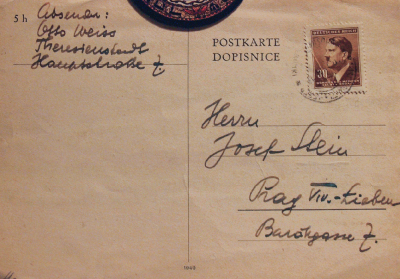 5 h Absender:
Otto Weiss
Theresienstadt
Hauptstraße 7
POSTKARTE
DOPISNICE
DEUTSCHES REICH
30
Herrn
Josef Stein
Prag VIII.-Lieben
7.